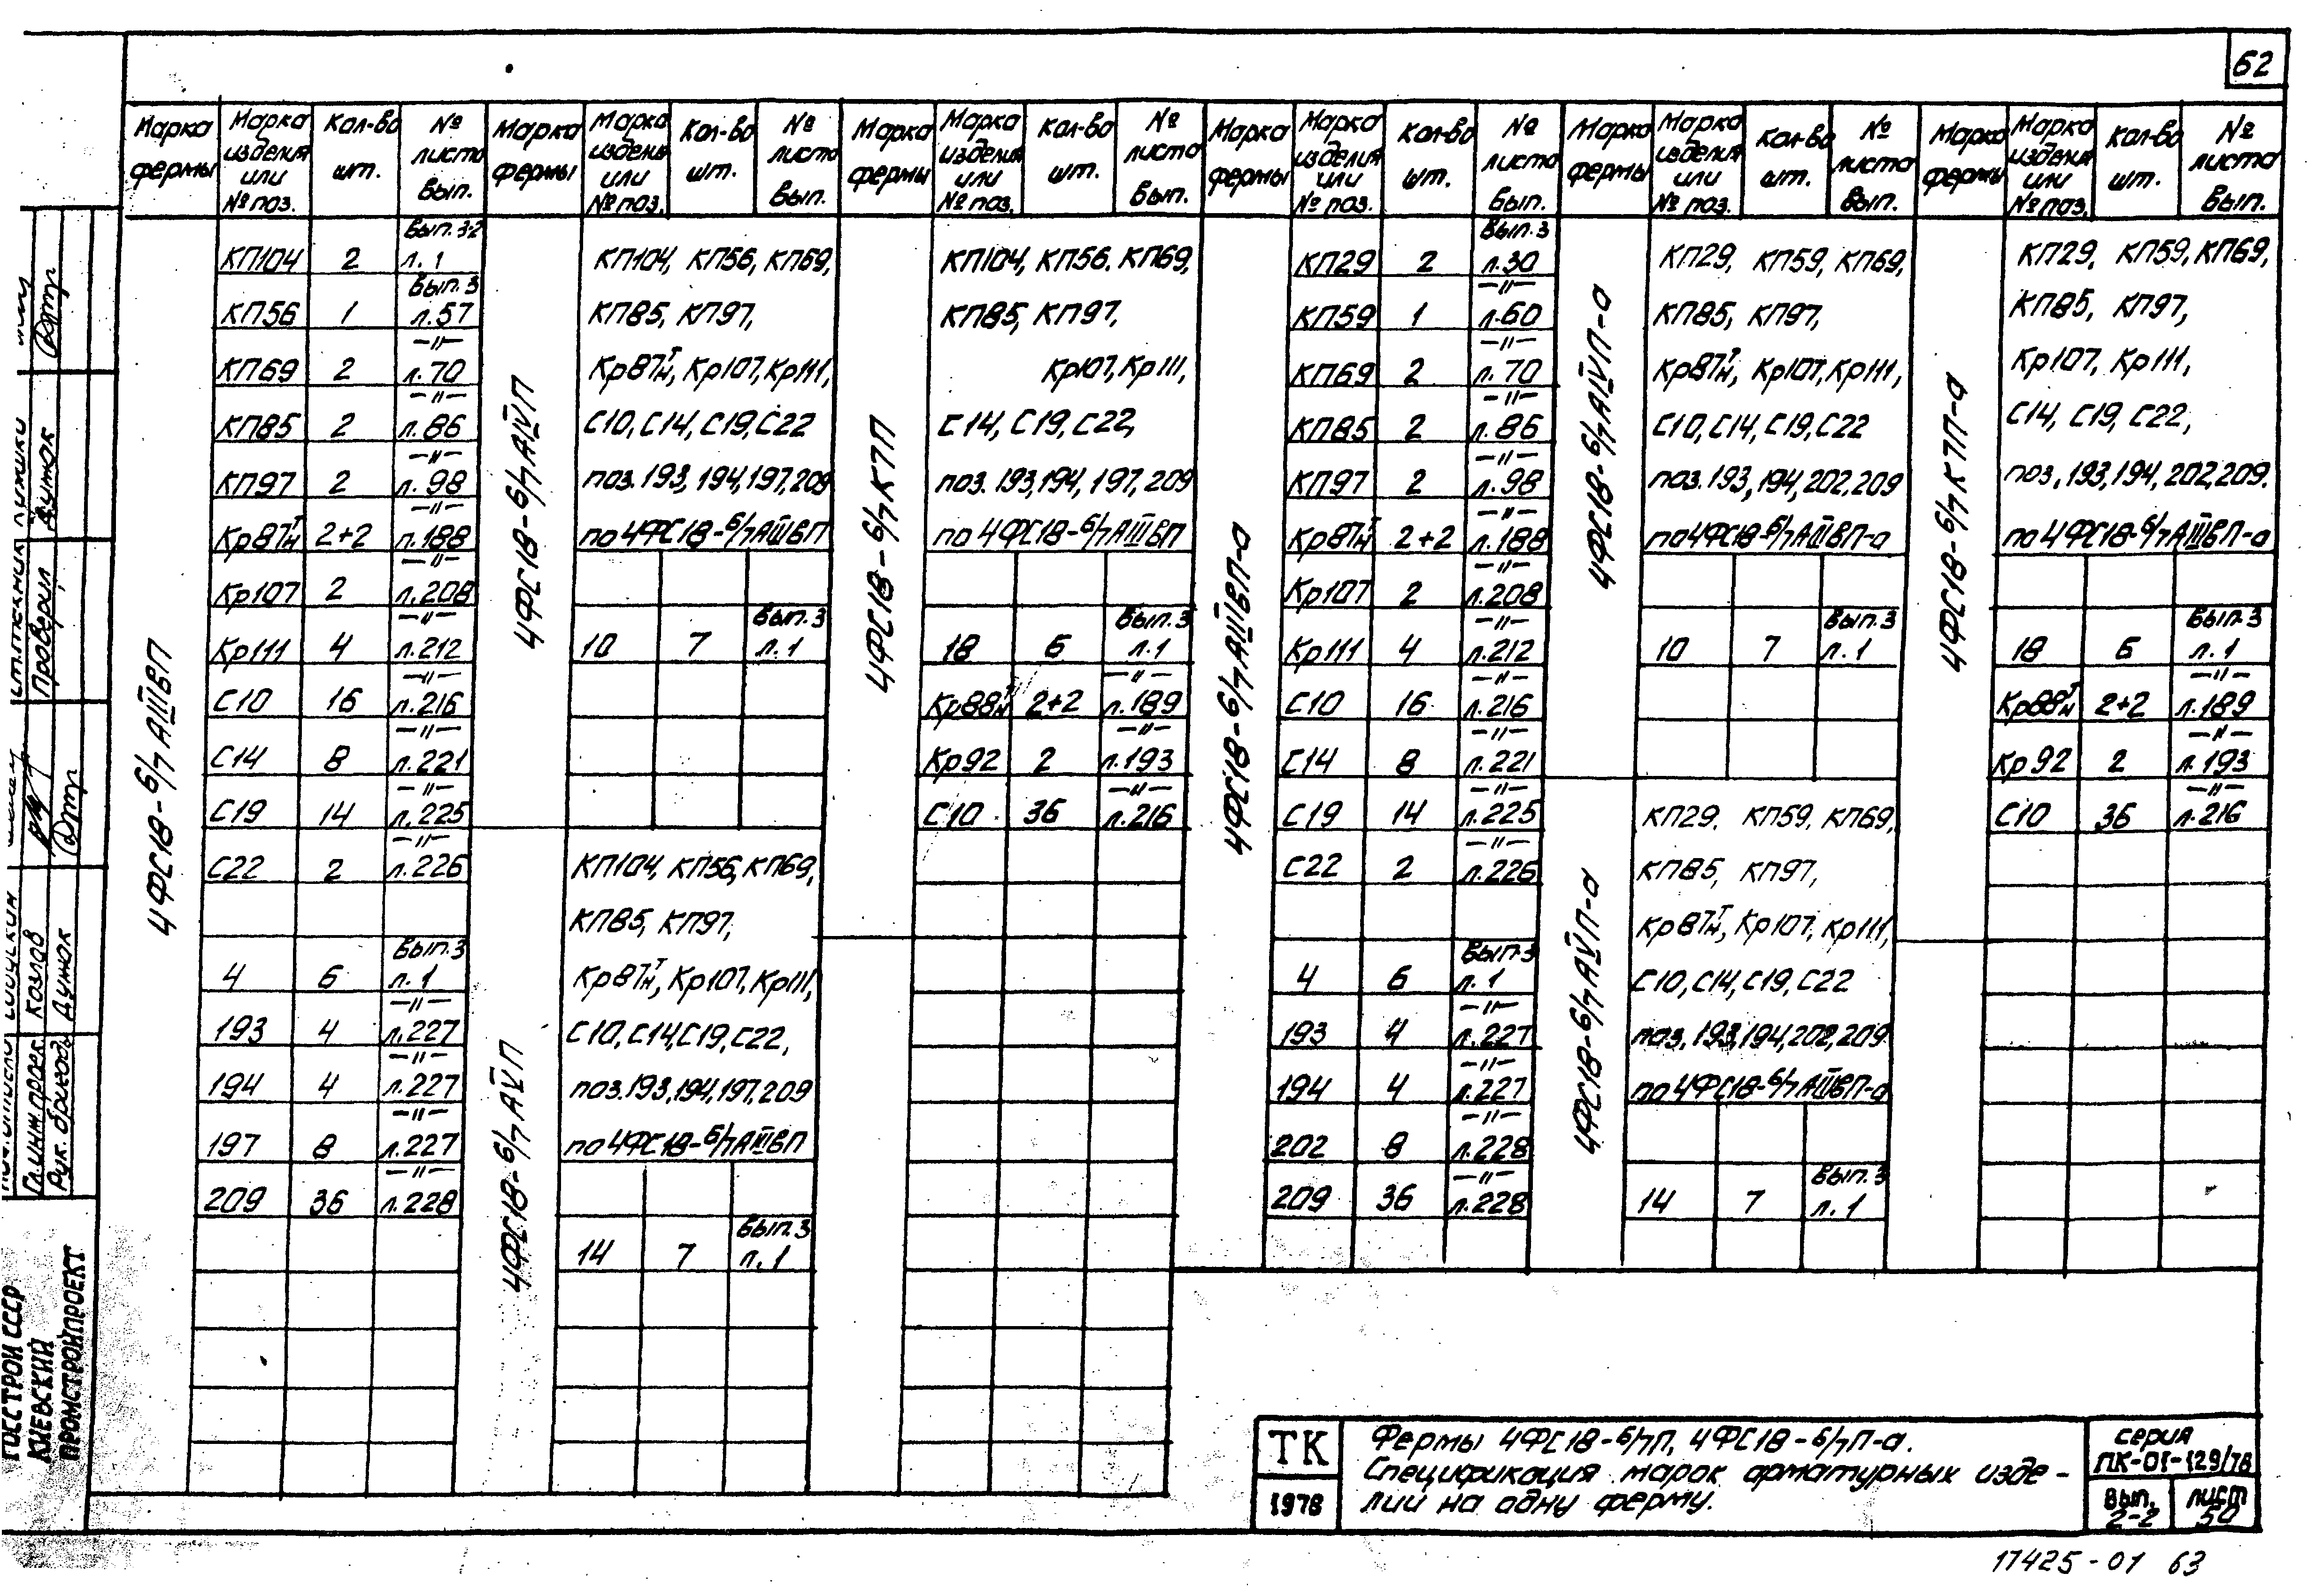 62
Марка фермы | Марка изделия или № поз. | Кол-во шт. | № листа Вып. | Марка фермы | Марка изделия или № поз. | Кол-во шт. | № листа Вып. | Марка фермы | Марка изделия или № поз. | Кол-во шт. | № листа Вып. | Марка фермы | Марка изделия или № поз. | Кол-во шт. | № листа Вып. | Марка фермы | Марка изделия или № поз. | Кол-во шт. | № листа Вып. | Марка фермы | Марка изделия или № поз. | Кол-во шт. | № листа Вып.
4ФС18-6/7АIIIВП
КП104 2 Вып. 3-2 л. 1
КП56 1 Вып. 3 л.57
КП69 2 —"— л.70
КП85 2 —"— л.86
КП97 2 —"— л.98
Кр87т/н 2+2 —"— л.188
Кр107 2 —"— л.208
Кр111 4 —"— л.212
С10 16 —"— л.216
С14 8 —"— л.221
С19 14 —"— л.225
С22 2 —"— л.226
4 6 Вып.3 л.1
193 4 —"— л.227
194 4 —"— л.227
197 8 —"— л.227
209 36 —"— л.228
4ФС18-6/7АIVП
КП104, КП56, КП69,
КП85, КП97,
Кр87т/н, Кр107, Кр111,
С10, С14, С19, С22
поз. 193, 194, 197, 209
по 4ФС18-6/7АIIIВП
10 7 Вып. 3 л. 1
4ФС18-6/7АVП
КП104, КП56, КП69,
КП85, КП97,
Кр87т/н, Кр107, Кр111,
С10, С14, С19, С22,
поз. 193, 194, 197, 209
по 4ФС18-6/7АIIIВП
14 7 Вып. 3 л. 1
4ФС18-6/7К7П
КП104, КП56. КП69,
КП85, КП97,
Кр107, Кр111,
С14, С19, С22,
поз. 193, 194, 197, 209
по 4ФС18-6/7АIIIВП
18 6 Вып. 3 л.1
Кр88т/н 2+2 —"— л.189
Кр92 2 —"— л.193
С10 36 —"— л.216
4ФС18-6/7АIIIВП-а
КП29 2 Вып. 3 л.30
КП59 1 —"— л.60
КП69 2 —"— л.70
КП85 2 —"— л.86
КП97 2 —"— л.98
Кр87т/н 2+2 —"— л.188
Кр107 2 —"— л.208
Кр111 4 —"— л.212
С10 16 —"— л.216
С14 8 —"— л.221
С19 14 —"— л.225
С22 2 —"— л.226
4 6 Вып.3 л.1
193 4 —"— л.227
194 4 —"— л.227
202 8 —"— л.228
209 36 —"— л.228
4ФС18-6/7АIVП-а
КП29, КП59, КП69,
КП85, КП97,
Кр87т/н, Кр107, Кр111,
С10, С14, С19, С22
поз. 193, 194, 202, 209
по 4ФС18-6/7АIIIВП-а
10 7 Вып. 3 л. 1
4ФС18-6/7АVП-а
КП29, КП59, КП69,
КП85, КП97,
Кр87т/н, Кр107, Кр111,
С10, С14, С19, С22
поз. 193, 194, 202, 209
по 4ФС18-6/7АIIIВП-а
14 7 Вып. 3 л. 1
4ФС18-6/7К7П-а
КП29, КП59, КП69,
КП85, КП97,
Кр107, Кр111,
С14, С19, С22,
поз, 193, 194, 202, 209.
по 4ФС18-6/7АIIIВП-а
18 6 Вып. 3 л. 1
Кр88т/н 2+2 —"— л.189
Кр92 2 —"— л.193
С10 36 —"— л.216
ТК
1978
Фермы 4ФС18-6/7П, 4ФС18-6/7П-а.
Спецификация марок арматурных изде-
лий на одну ферму.
серия
ПК-01-129/78
Вып.
2-2
лист
50
17425-01 63
ГОССТРОЙ СССР
КИЕВСКИЙ
ПРОМСТРОЙПРОЕКТ
Гл.инж.проек.
Козлов
Рук. бригады
Думок
Ст.техник
Проверил
Думок